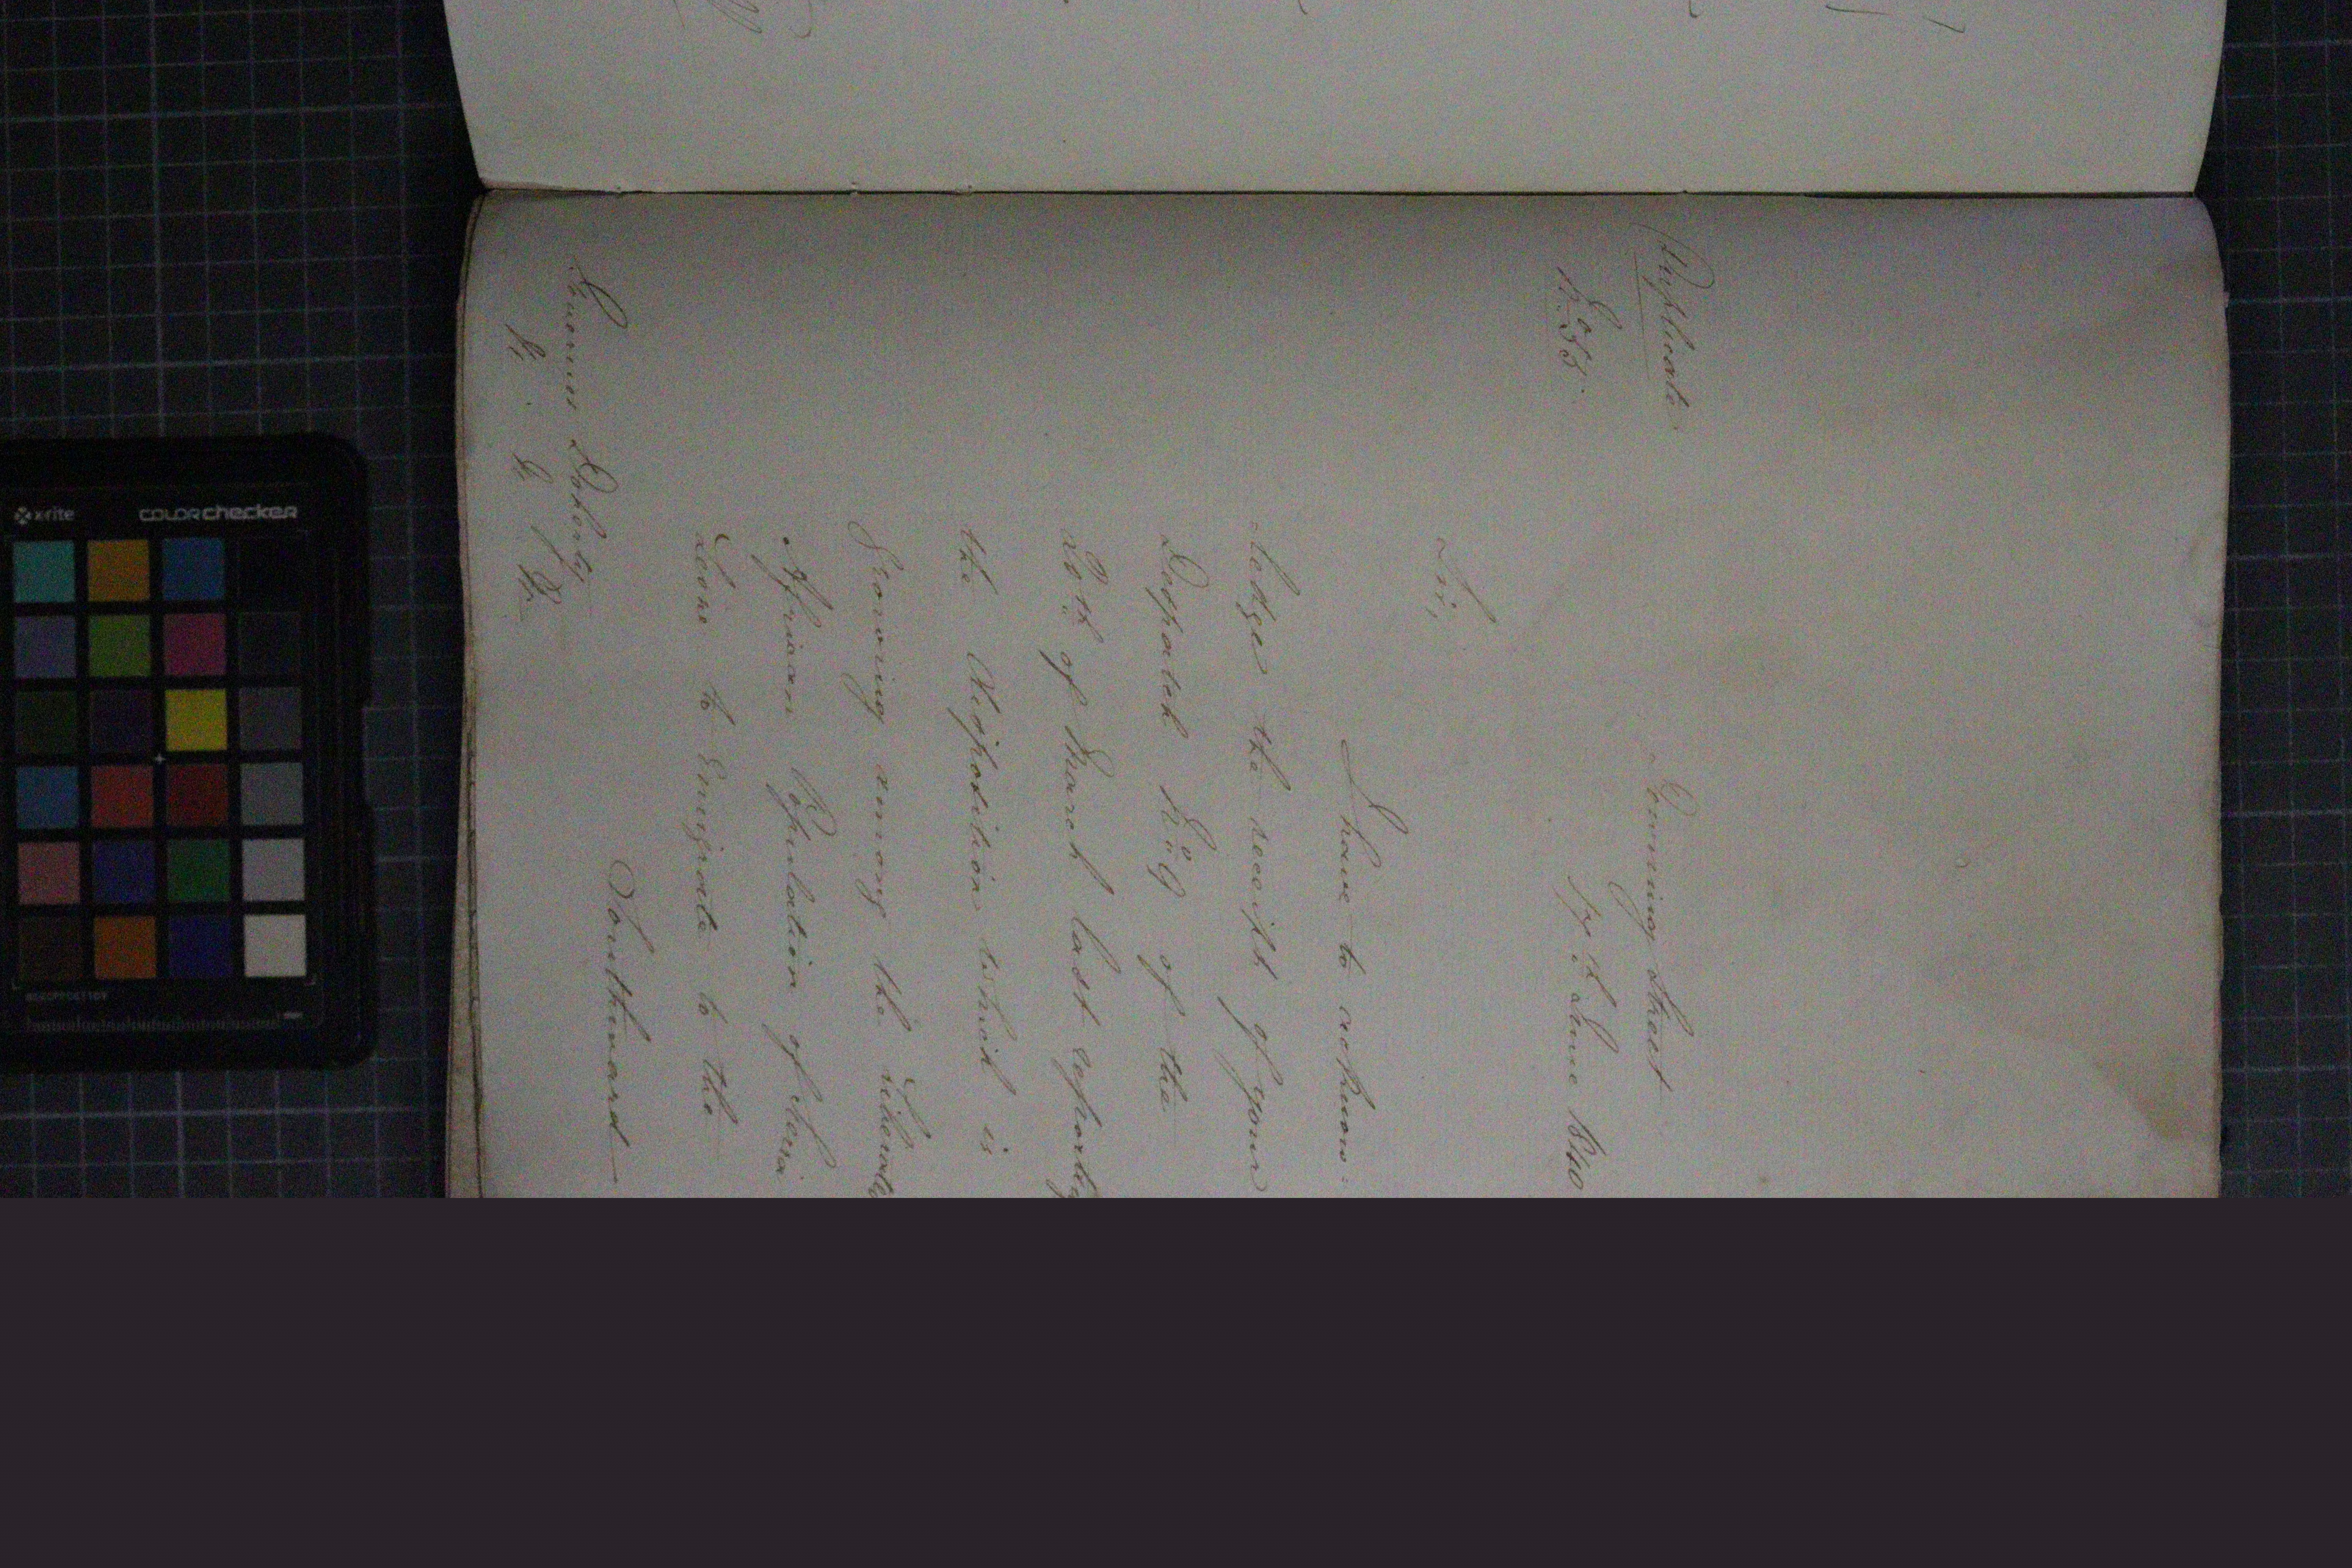 Duplicate
Downing Street
No. 38.
June 1840
Sir,
I have to acknow-
ledge the receipt of your
Despatch No. 9 of the
20th of March last reporting
the Disposition which is
Growing among the Liberated
African Population of Sierra
Leone to Emigrate to the
Southward
Governor Doherty
x-rite colorchecker